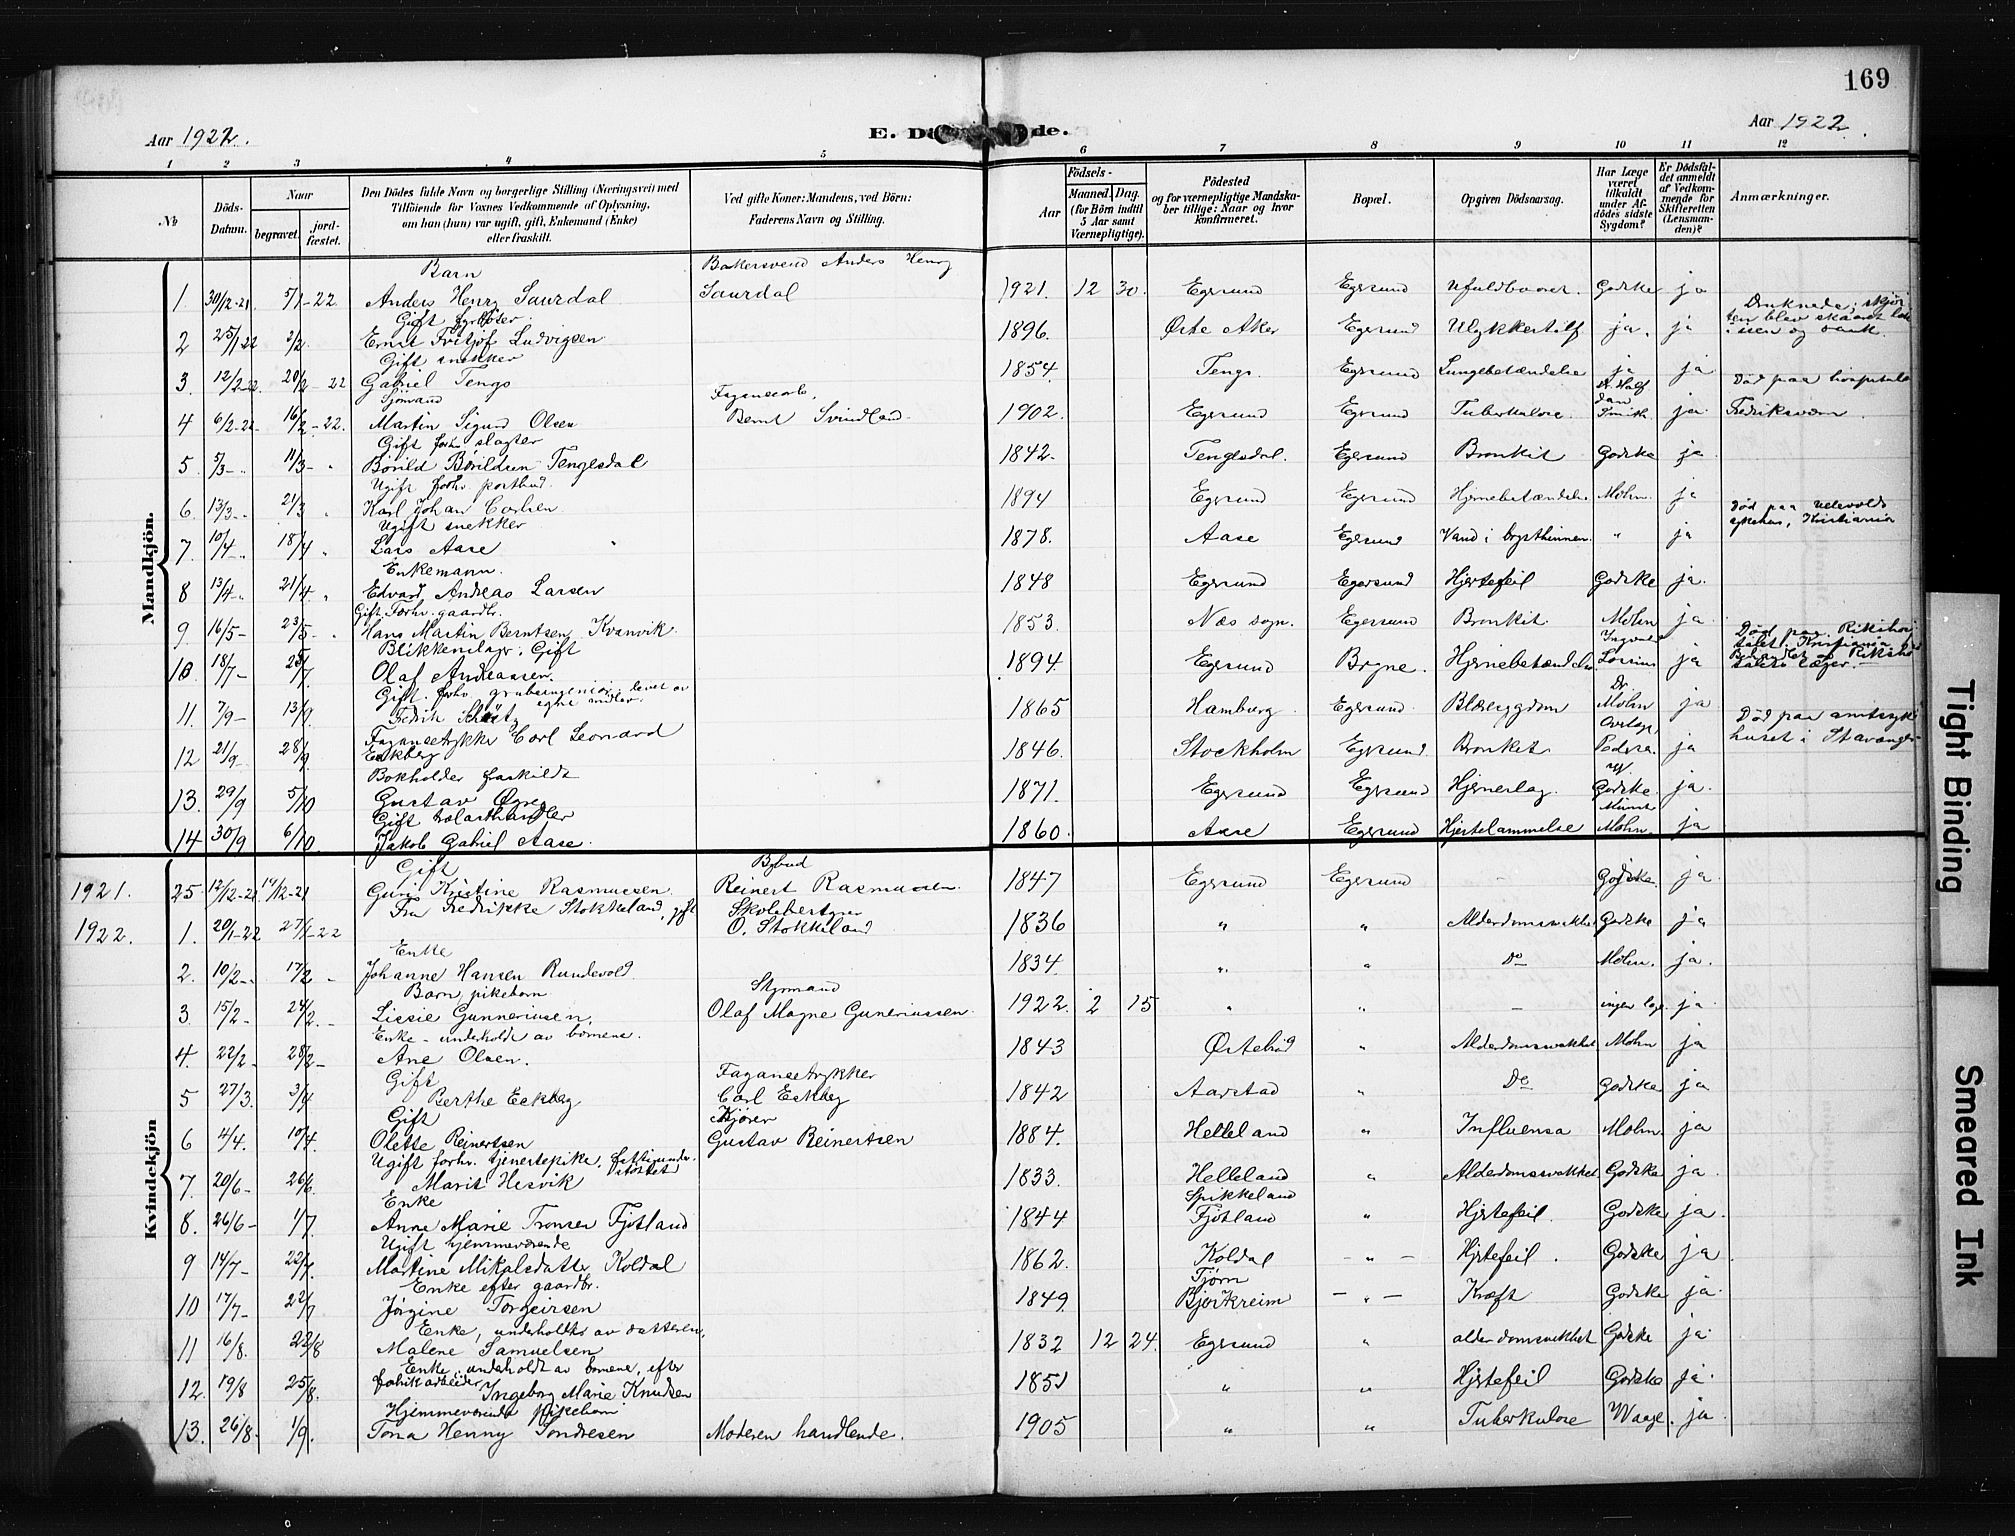 169
Aar 1922.
E. D de.
Aar 1922.
1 2 3 4 5 6 7 8 9 10 11 12
No
Döds-Datum.
Naar
begravet. jord-fæstet.
Den Dödes fulde Navn og borgerlige Stilling (Næringsvei) med
Tilföiende for Voxnes Vedkommende af Oplysning,
om han (hun) var ugift, gift, Enkemand (Enke)
eller fraskilt.
Ved gifte Koner: Mandens, ved Börn:
Faderens Navn og Stilling.
Födsels-
Aar
Maaned. Dag.
(for Börn indtil
5 Aar samt
Værnepligtige).
Födested
og for værnepligtige Mandska-
ber tillige: Naar og hvor
konfirmeret.
Bopæl.
Opgiven Dödsaarsag.
Har Læge
været
tilkaldt
under Af-
dödes sidste
Sygdom?
Er Dödsfal-
det anmeldt
af Vedkom-
mende for
Skifteretten
(Lensman-
den)?
Anmærkninger.
Mandkjön.
Barn Bakersvend Anders Henry
1. 30/12-21 5/1-22 Anders Henry Saurdal Saurdal 1921. 12 30. Egersund Egersund Ufuldbaaret. Godske ja
Gift fyrbøter.
2 25/1-22 3/2. Ernst Fritjof Ludvigsen 1896. Øste Aker Egersund Ulykkestilf ja. ja Druknede; skjøi
ten blev skaaret læk
isen og sank.
Gift snekker
3. 12/2-22. 20/2-22 Gabriel Tengs 1854. Tengs. Egersund Lungebetændelse ja ja Død paa hospitalet
Sjømand Fajansearb.
4 6/2-22 16/2-22. Martin Sigurd Olsen Bernt Svindland. 1902. Egersund Egersund Tuberkulose. Dr. Half
dan
Smith. ja. Fredriksværn
Gift forh. slagter
5. 5/3-" 11/3-" Børild Børildsen Tengesdal 1842. Tengesdal. Egersund Bronkit Godske ja
Ugift forh. postbud.
6. 13/3-" 21/3 " Karl Johan Carlsen 1894 Egersund Egersund Hjernebetændelse Mohn. ja
Ugift snekker
7. 10/4-" 18/4 " Lars Aase 1878. Aase Egersund Vand i brysthinnen " ja Død paa Ullevolds
sykehus, Kristiania
Enkemann.
8 13/4-" 21/4. " Edvard Andreas Larsen 1848 Egersund Egersund Hjertefeil Godske ja.
Gift. Forhv. gaardbr.
9. 16/5- 23/5- " Hans Martin Berntsen Kvanvik. 1853. Næs sogn. Egersund Bronkit. Mohn ja.
Blikkenslager. Gift
10. 18/7- 25/7 Olaf Andreassen. 1894. Egersund Bryne. Hjernebetændelse Lossius ja Død paa Rikshos
pitalet Kristiania
Gift. forhv. grubeingeniør, levet av
egne midler.
11. 7/9- 13/9. Fedrik Schøtz 1865 Hamburg. Egersund. Blæresygdom Dr.
Mohn ja
Fajansetrykker Carl Leonard
12 21/9- 28/9. Eckberg 1846. Stockholm Egersund. Bronkit. Overlæge
Peder ja Død paa amtsyke
huset i Stavanger
Bokholder fraskildt
13. 29/9 5/10 Gustav Øgre 1871. Egersund Egersund Hjerneslag. Godske. ja.
Gift
14. 30/9 6/10. Jakob Gabriel Aase. 1860. Aase Egersund Hjertelammelse Mohn. ja
Kvindekjön
Gift Bybud
1921. 25. 12/12-21 19/12-21 Guri Kristine Rasmussen. Reinert Rasmussen. 1847 Egersund Egersund - Godske. ja.
Fru Fredrikke Stokkeland, gift Skolebestyrer
1922. 1. 20/1-22 27/1-22 O. Stokkeland 1836 " " Alderdomssvakhet Godske ja
Enke
2. 10/2-" 17/2 - Johanne Hansen Rundevold. 1834. " " Do Mohn. ja.
Barn, pikebarn Styrmand
3. 15/2- 24/2. - Lissie Gunneriusen, Olaf Magne Guneriussen. 1922. 2 15 " " - ingen læge. ja
Enke - underholdt av børnene.
4. 22/2- 28/2- Ane Olsen. 1843 Østebrød " Alderdomssvakhet Mohn ja
Gift Fajansetrykker
5 27/3. 3/4 Berthe Eckberg Carl Eckberg 1842 Aarstad " Do Godske ja
Gift Kjører
6 4/4. 10/4. Olette Reinertsen Gustav Reinertsen 1884. Helleland " Influensa Mohn. ja
Ugift forhv. tjenestepike. fattigunder-
støttet
7. 20/6- 26/6. Marit Hesvik 1833. Helleland " Alderdomssvakhet Godske ja.
Enke Spikkeland
8. 26/6- 1/7. Anne Marie Tronser Fjotland 1844 Fjotland " Hjertefeil. Godske ja.
Ugift hjemmeværende
9 14/7- 22/7. Martine Mikalsdatter Koldal 1862. Koldal - " - Hjertefeil. Godske ja
Enke efter gaardbr. Tjørn
10 17/7- 22/7 Jørgine Torgeirsen 1849. Bjerkreim - " - Kræft Godske ja.
Enke, underholdt av datteren.
11 16/8. 22/8 Malene Samuelsen 1832 12 24. Egersund " alderdomsvakhet Godske ja.
Enke, underholdt av børnene, efter
fabrikarbeider
12. 19/8 25/8. Ingeborg Marie Knudsen 1851 " " Hjertefeil Godske ja.
Hjemmeværende pikebarn
13. 26/8- 1/9. Tona Henny Tondresen Moderen handlende. 1905 " " Tuberkulose Waage. ja.
Tight Binding
Smeared Ink